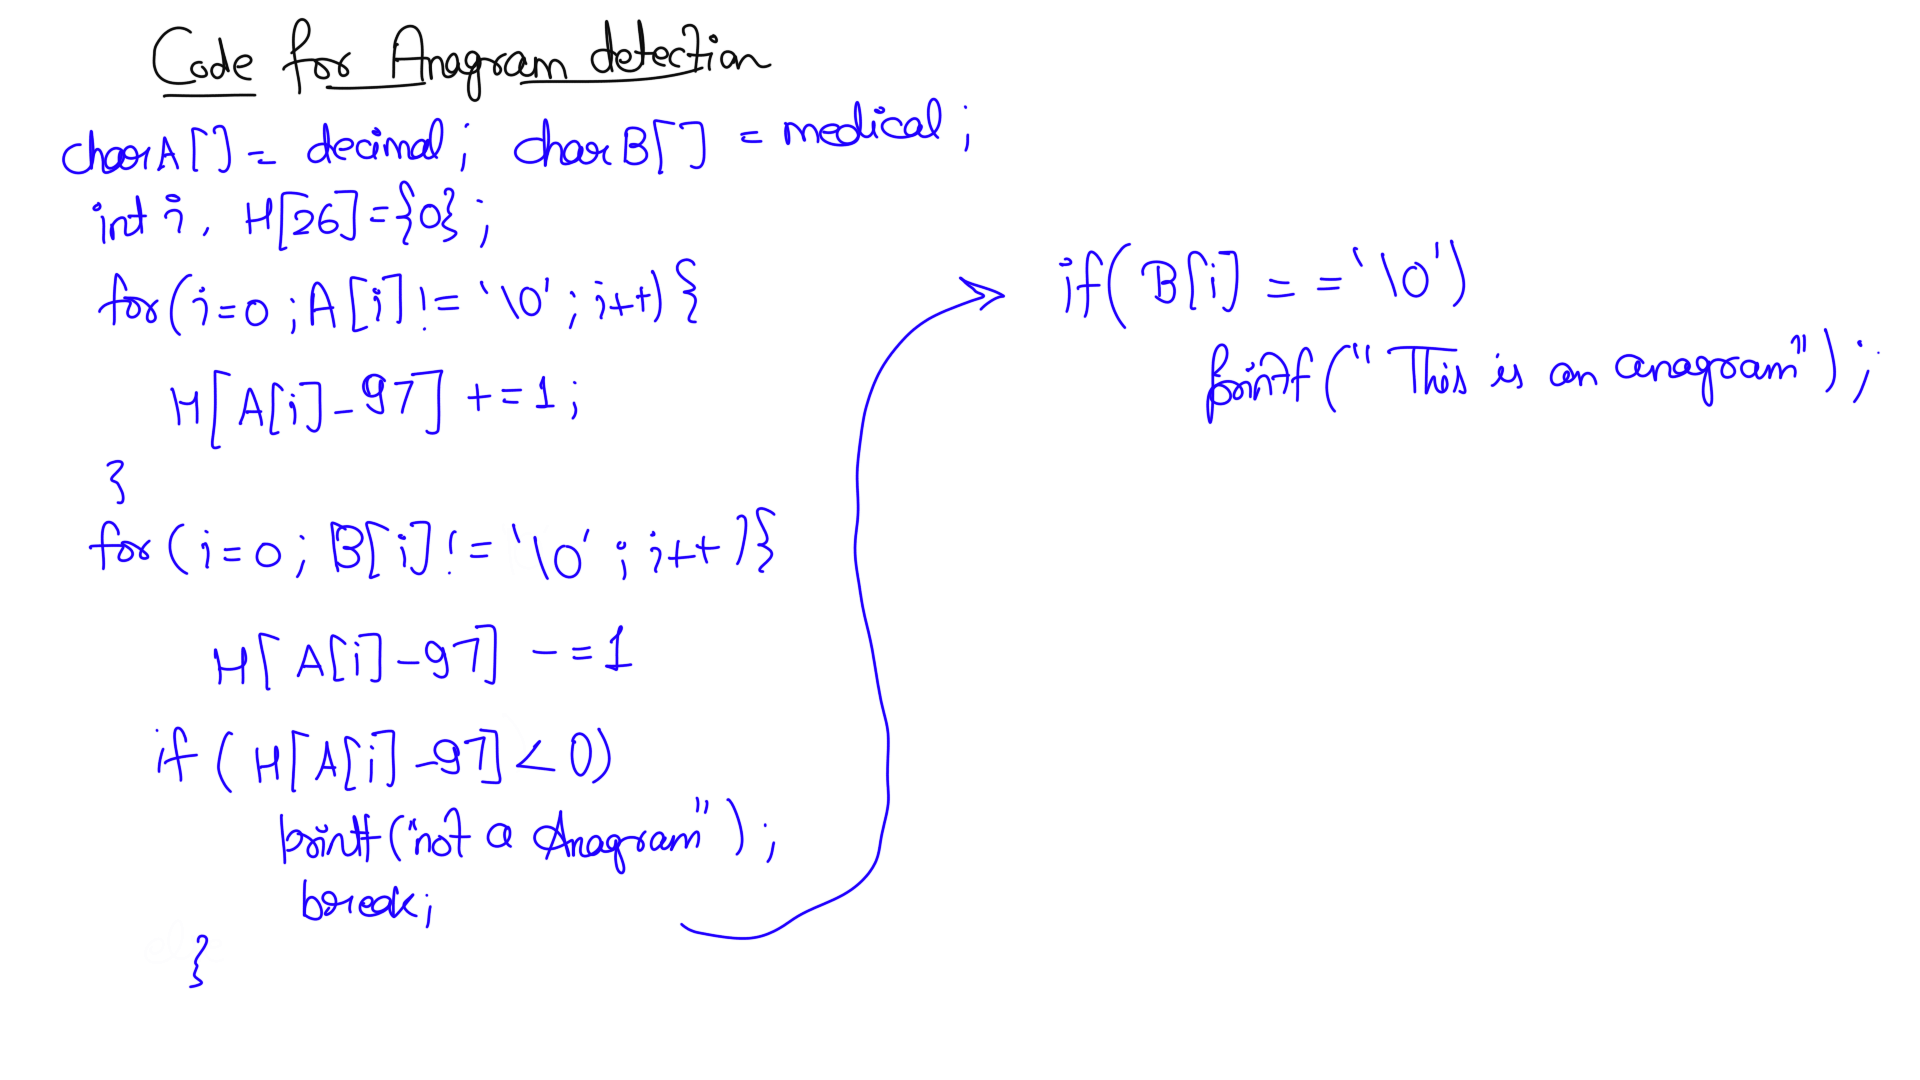 Code for Anagram detection
char A[] = decimal; char B[] = medical;
int i, H[26]={0};
for(i=0;A[i]!='\0';i++){
H[A[i]-97] +=1;
}
for(i=0;B[i]!='\0';i++){
H[A[i]-97] -=1
if(H[A[i]-97]<0)
printf("not a Anagram");
break;
}
if(B[i]=='\0')
printf("This is an anagram");